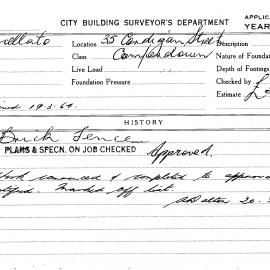 CITY BUILDING SURVEYOR'S DEPARTMENT
APPLIC
YEAR
Location 35 Cardigan Street
Description
Class Camperdown
Nature of Foundat
Live Load
Depth of Footings
Foundation Pressure
Checked by
Estimate £
19.3.64.
HISTORY
Brick Fence
PLANS & SPECN. ON JOB CHECKED Approved.
Work commenced & completed to approv
Marked off list.
20.